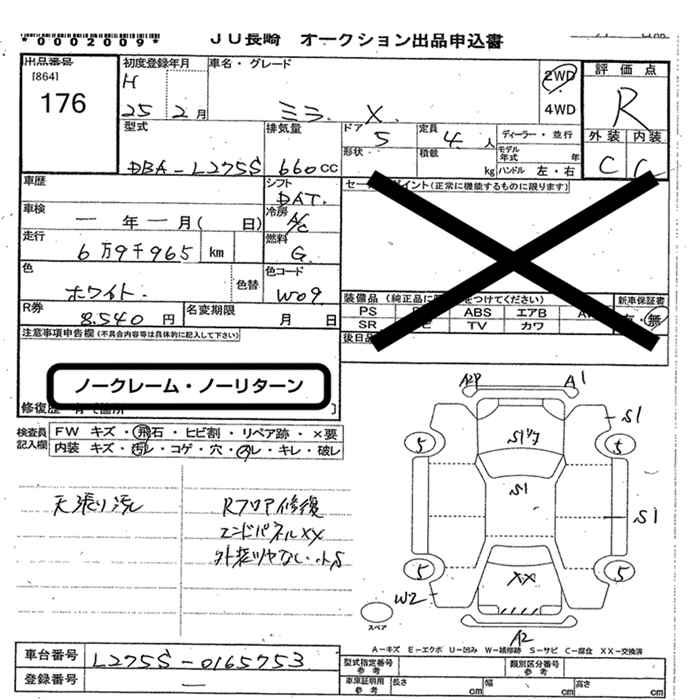 *0002009*
JU長崎 オークション出品申込書
出品番号 初度登録年月 車名・グレード 2WD 評価点
[864] H 4WD R
176 25 2月 ミラ X.
型式 排気量 ドア 5 定員 4人 ディーラー・並行 外装 内装
DBA-L275S 660cc 形状 積載 kg モデル年式 年 C C
ハンドル 左・右
車歴 シフト セールスポイント(正常に機能するものに限ります)
DAT.
車検 一年一月( 日) 冷房 A/C
走行 6万9千965 km 燃料 G.
色 ホワイト. 色替 色コード W09
装備品(純正品に をつけてください) 新車保証書
R券 8.540円 名変期限 月 日 PS ABS エアB 有・無
SR TV カワ
注意事項申告欄(不具合内容等は具体的に記入して下さい) 後日品
ノークレーム・ノーリターン
修復歴
検査員記入欄 FW キズ・飛石・ヒビ割・リペア跡・×要
内装 キズ・汚レ・コゲ・穴・スレ・キレ・破レ
天張り汚レ Rフロア修復
エンドパネルXX
外装ツヤなし・小S
A1
S1
5 5
S1
S1
5 5
XX
W2
スペア
A2
A-キズ E-エクボ U-凹み W-補修跡 S-サビ C-腐食 XX-交換済
車台番号 L275S-0165753
登録番号 —
型式指定番号 参考 類別区分番号 参考
車庫証明用 参考 長さ cm 幅 cm 高さ cm